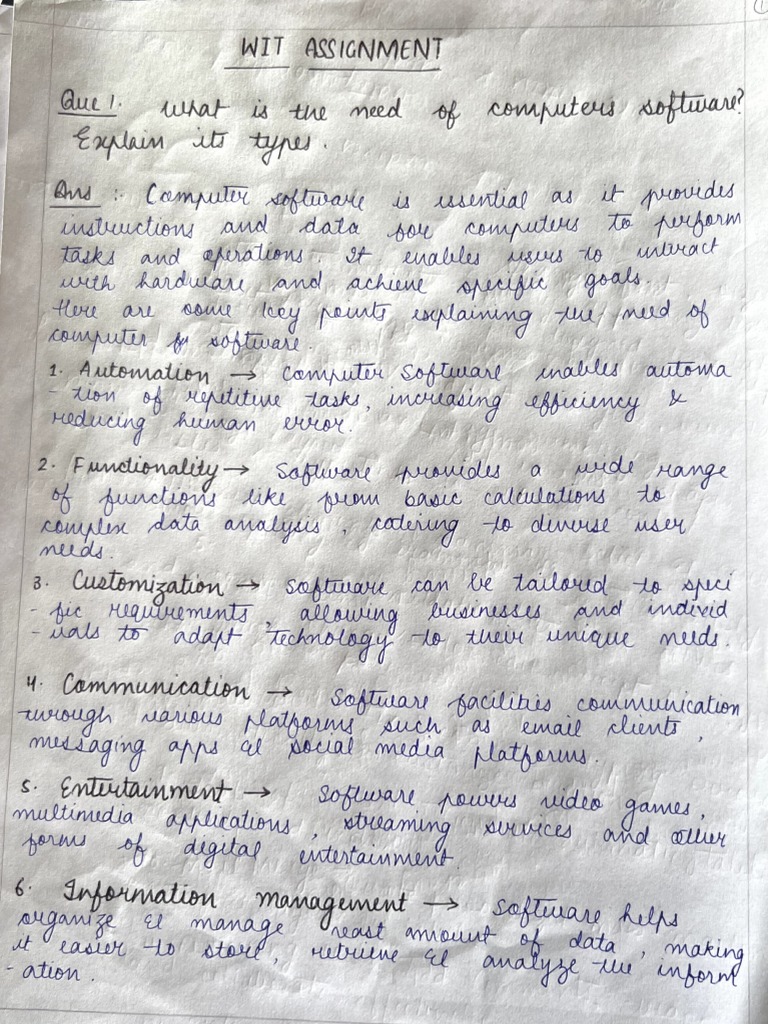 1
WIT ASSIGNMENT
Que 1. What is the need of computers software?
Explain its types.
Ans :- Computer software is essential as it provides
instructions and data for computers to perform
tasks and operations. It enables users to interact
with hardware and achieve specific goals.
Here are some key points explaining the need of
computer software.
1. Automation → Computer Software enables automa
- tion of repetitive tasks, increasing efficiency &
reducing human error.
2. Functionality → Software provides a wide range
of functions like from basic calculations to
complex data analysis, catering to diverse user
needs.
3. Customization → Software can be tailored to speci
- fic requirements, allowing businesses and individ
- uals to adapt technology to their unique needs.
4. Communication → Software facilities communication
through various platforms such as email clients,
messaging apps & social media platforms.
5. Entertainment → Software powers video games,
multimedia applications, streaming services and other
forms of degital entertainment.
6. Information management → Software helps
organize & manage vast amount of data, making
it easier to store, retrieve & analyze the inform
- ation.